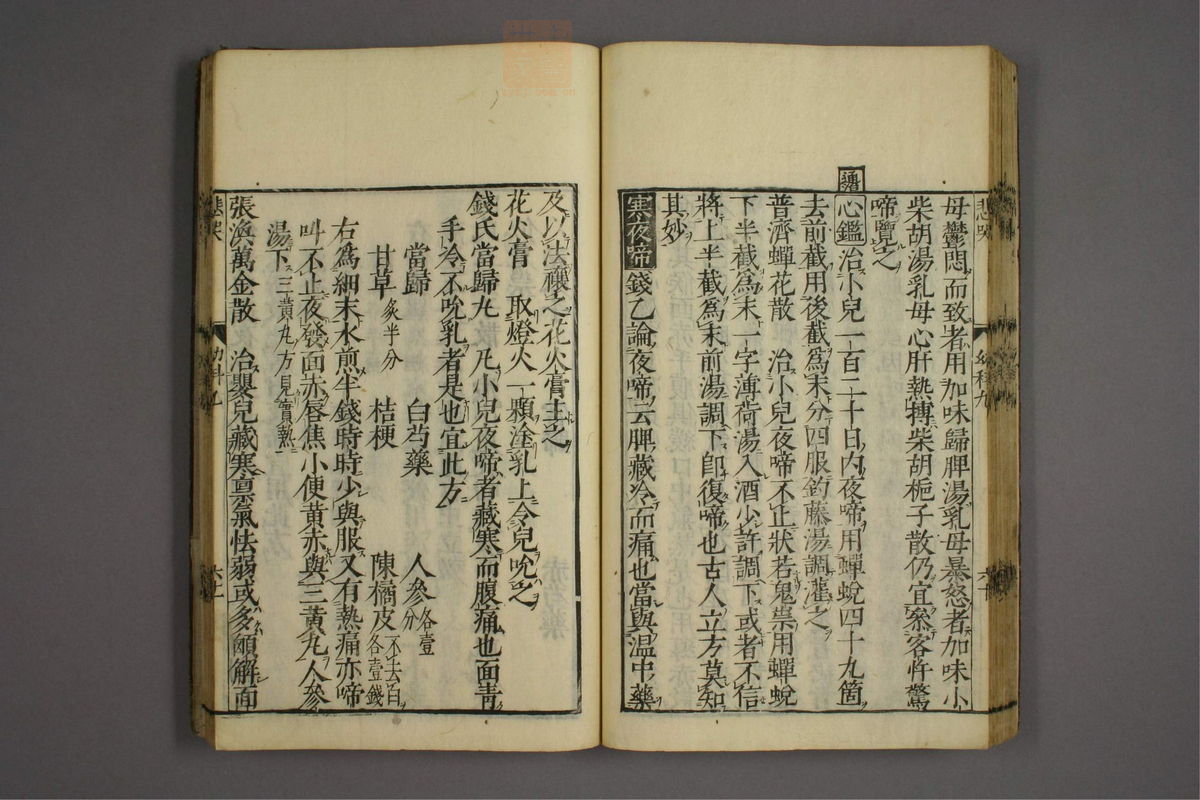 悲哭 幼科九 六十
母鬱悶而致者用加味歸脾湯乳母暴怒者加味小
柴胡湯乳母心肝熱搏柴胡梔子散仍宜察客忤驚
啼覽之
心鑑治小兒一百二十日内夜啼用蟬蛻四十九箇
去前截用後截爲末分四服釣藤湯調灌之
普濟蟬花散 治小兒夜啼不止狀若鬼祟用蟬蛻
下半截爲末一字薄荷湯入酒少許調下或者不信
將上半截爲末前湯調下卽復啼也古人立方莫知
其妙
寒夜啼錢乙論夜啼云脾藏冷而痛也當與温中藥
及以法禳之花火膏主之
花火膏 取燈火一顆塗乳上令兒吮之
錢氏當歸丸 凡小兒夜啼者藏寒而腹痛也面靑
手冷不吮乳者是也宜此方
當歸 白芍藥 人參各壹分
甘草炙半分 桔梗 陳橘皮不去白各壹錢
右爲細末水煎半錢時時少與服又有熱痛亦啼
叫不止夜發面赤唇焦小便黃赤與三黃丸人參
湯下三黃丸方見實熱
張渙萬金散 治嬰兒藏寒禀氣怯弱或多顖解面
悲哭